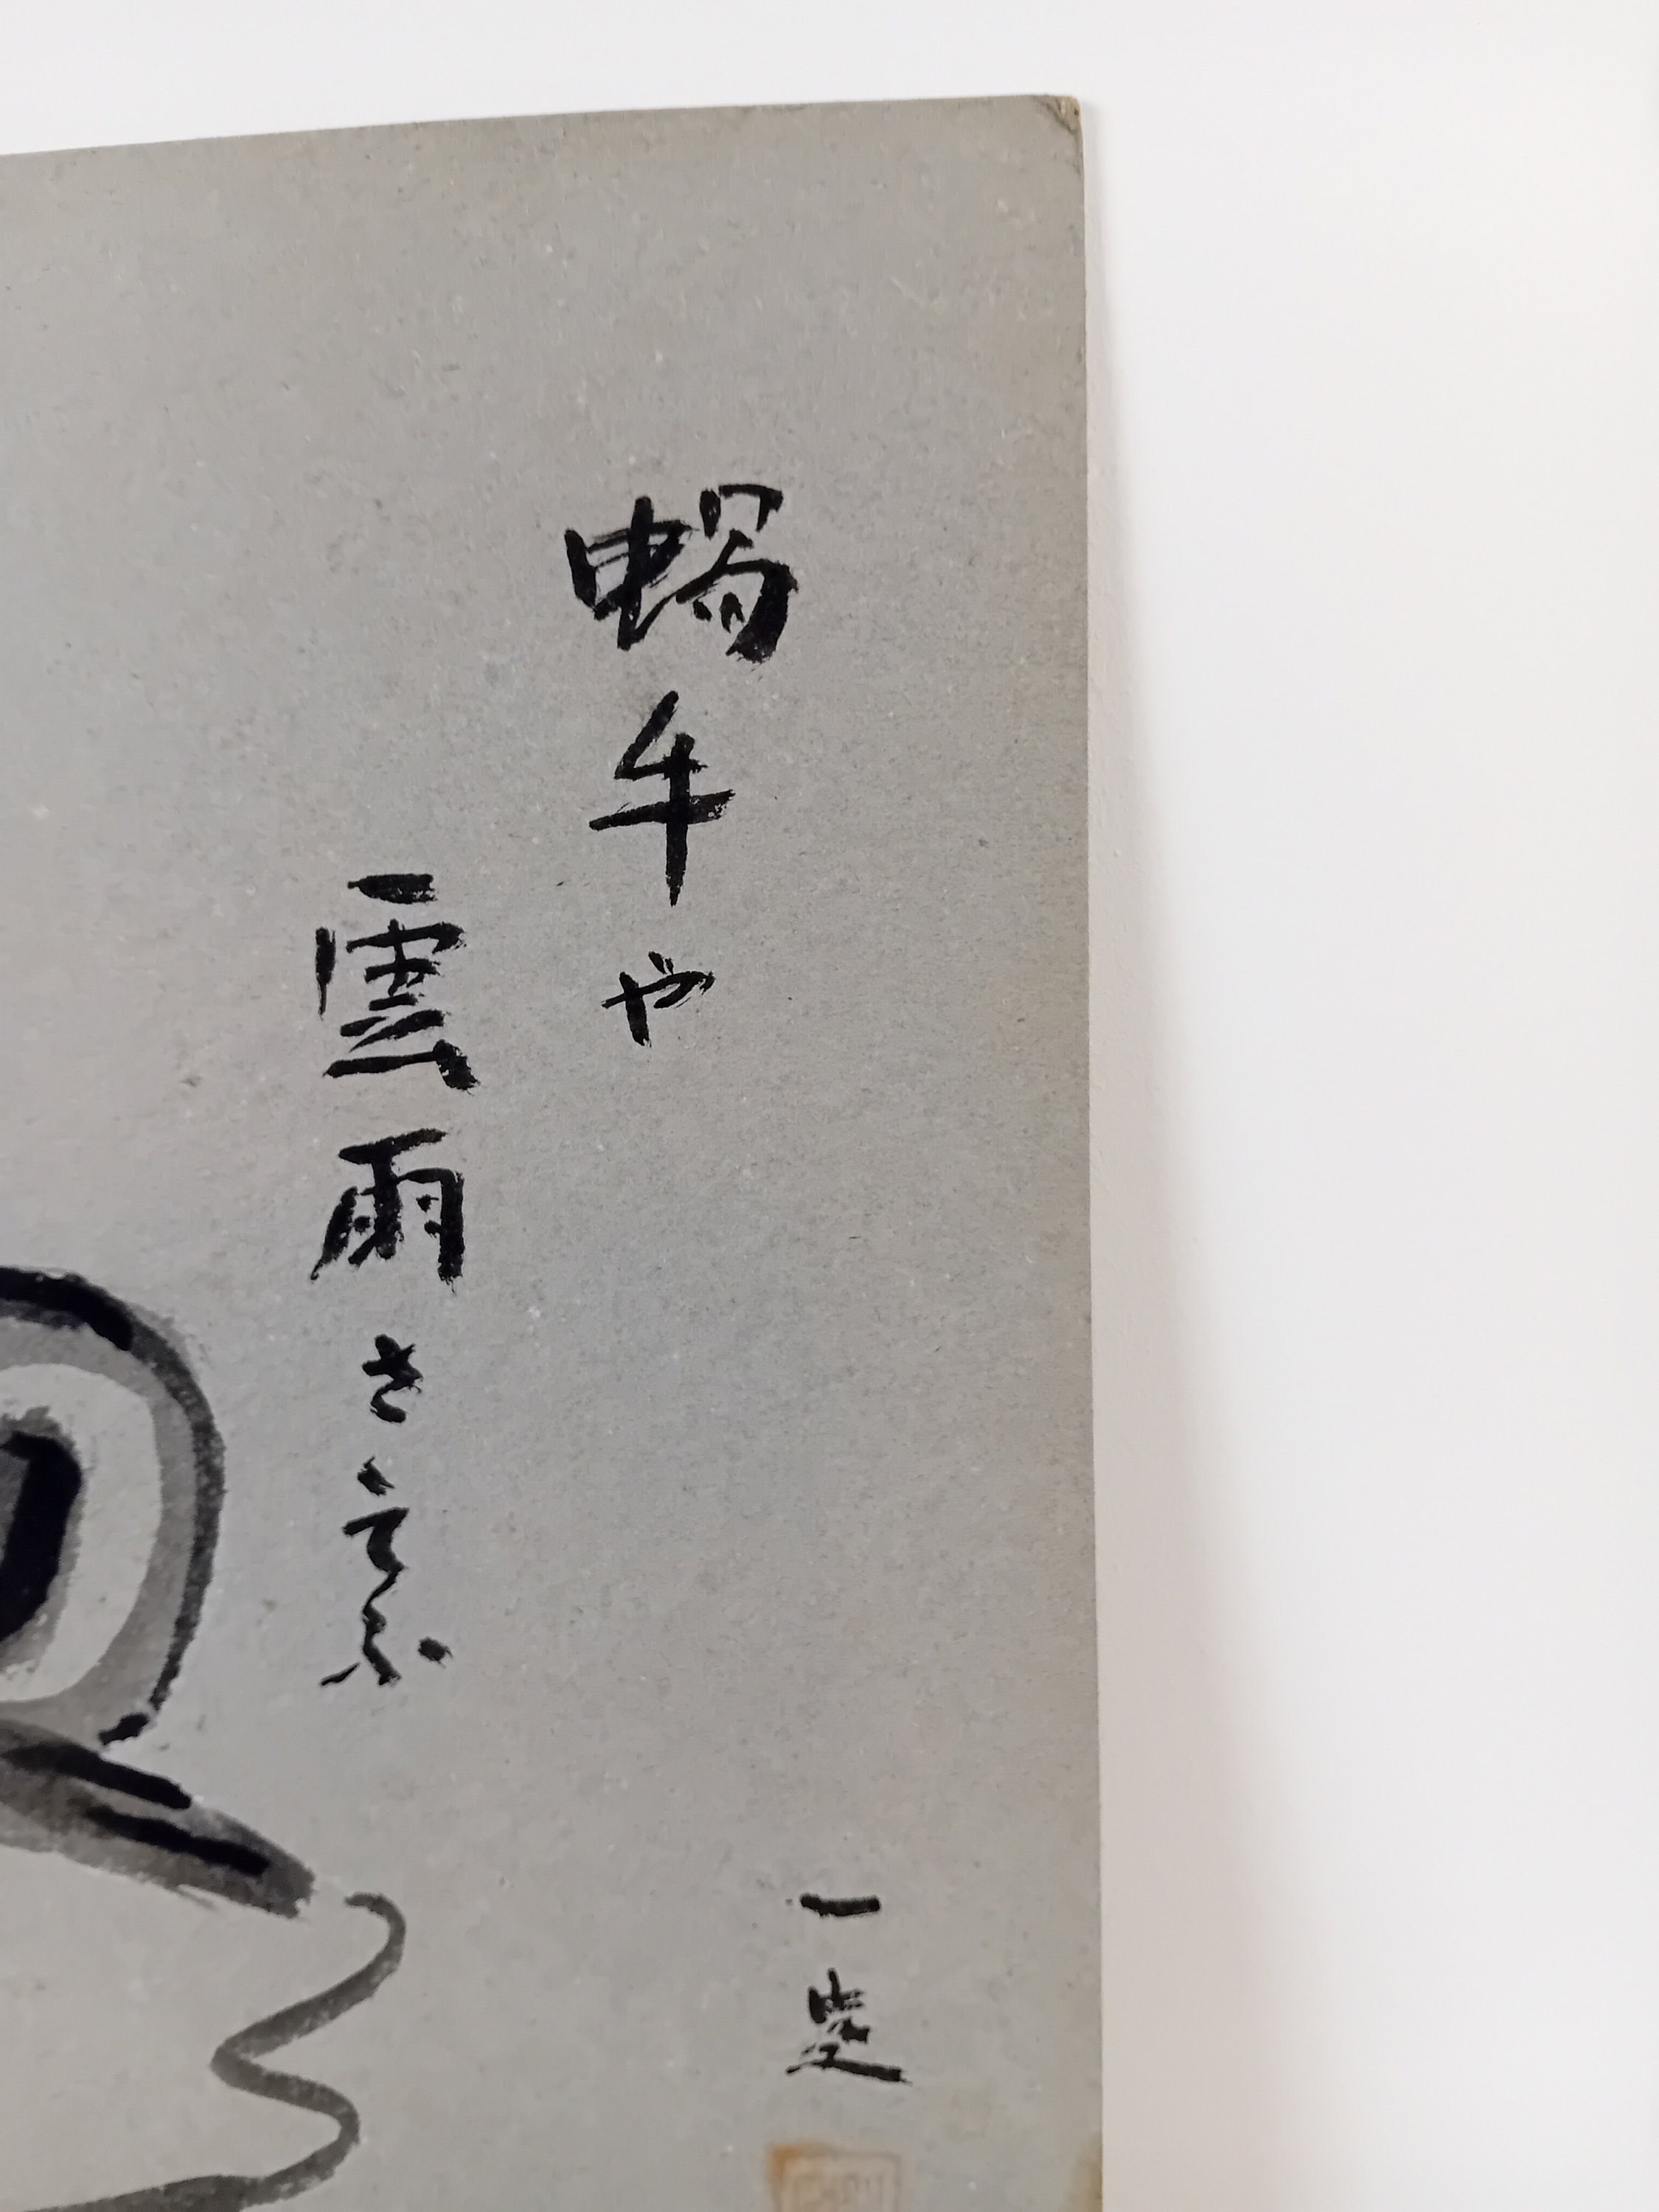 蝸牛や
雲雨さそふ